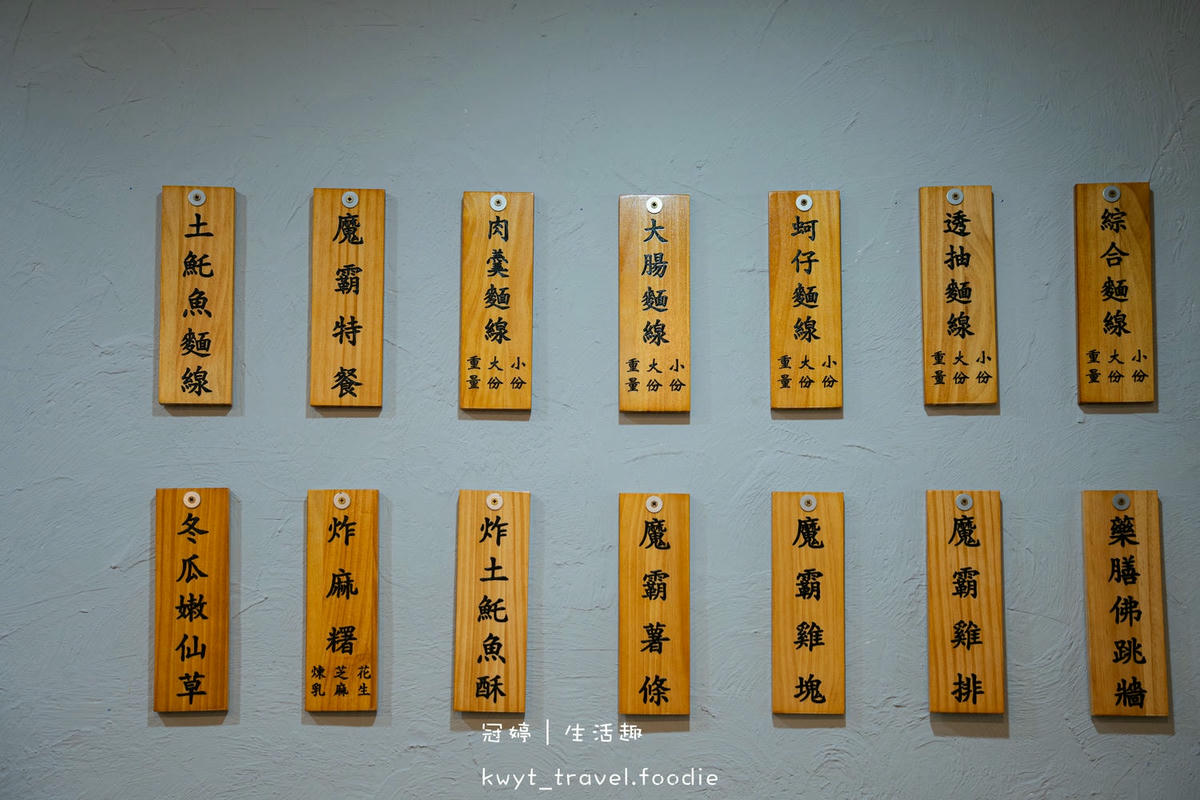 綜合麵線
小份
大份
重量
透抽麵線
小份
大份
重量
蚵仔麵線
小份
大份
重量
大腸麵線
小份
大份
重量
肉羹麵線
小份
大份
重量
魔霸特餐
土魠魚麵線
藥膳佛跳牆
魔霸雞排
魔霸雞塊
魔霸薯條
炸土魠魚酥
炸麻糬
花生
芝麻
煉乳
冬瓜嫩仙草
冠婷｜生活趣
kwyt_travel.foodie